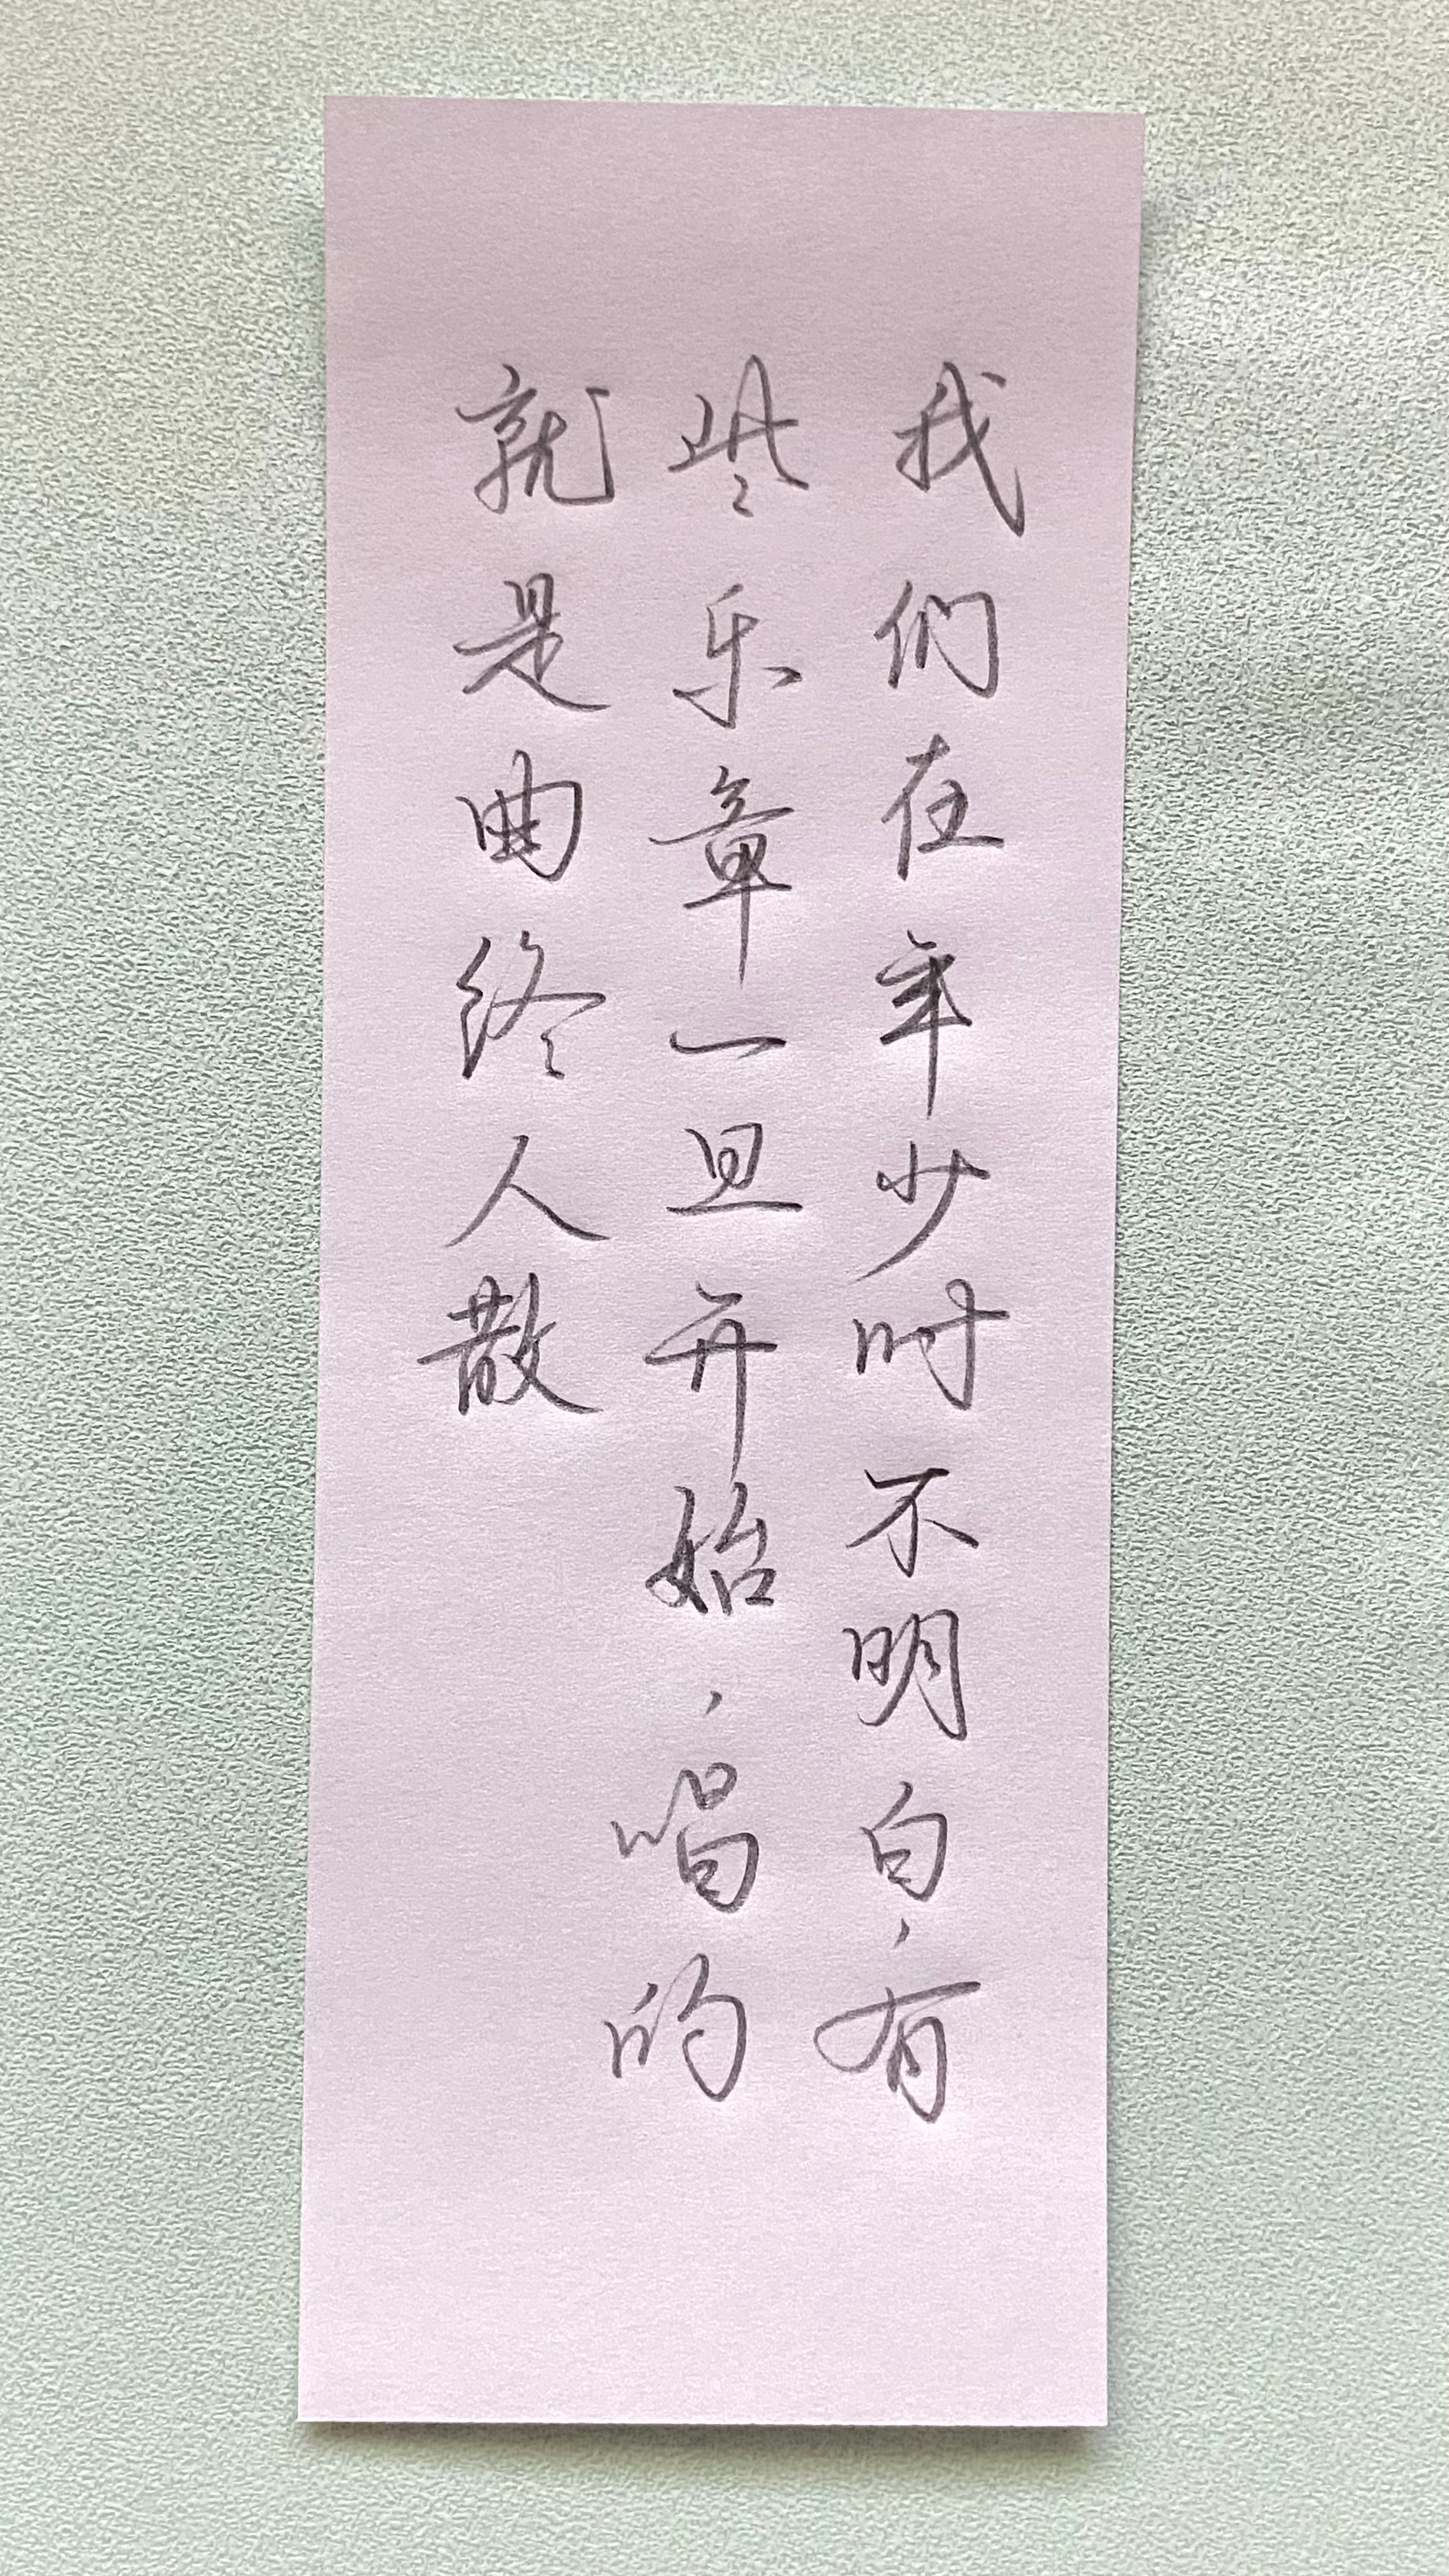 我们在年少时不明白，有
些乐章一旦开始，唱的
就是曲终人散